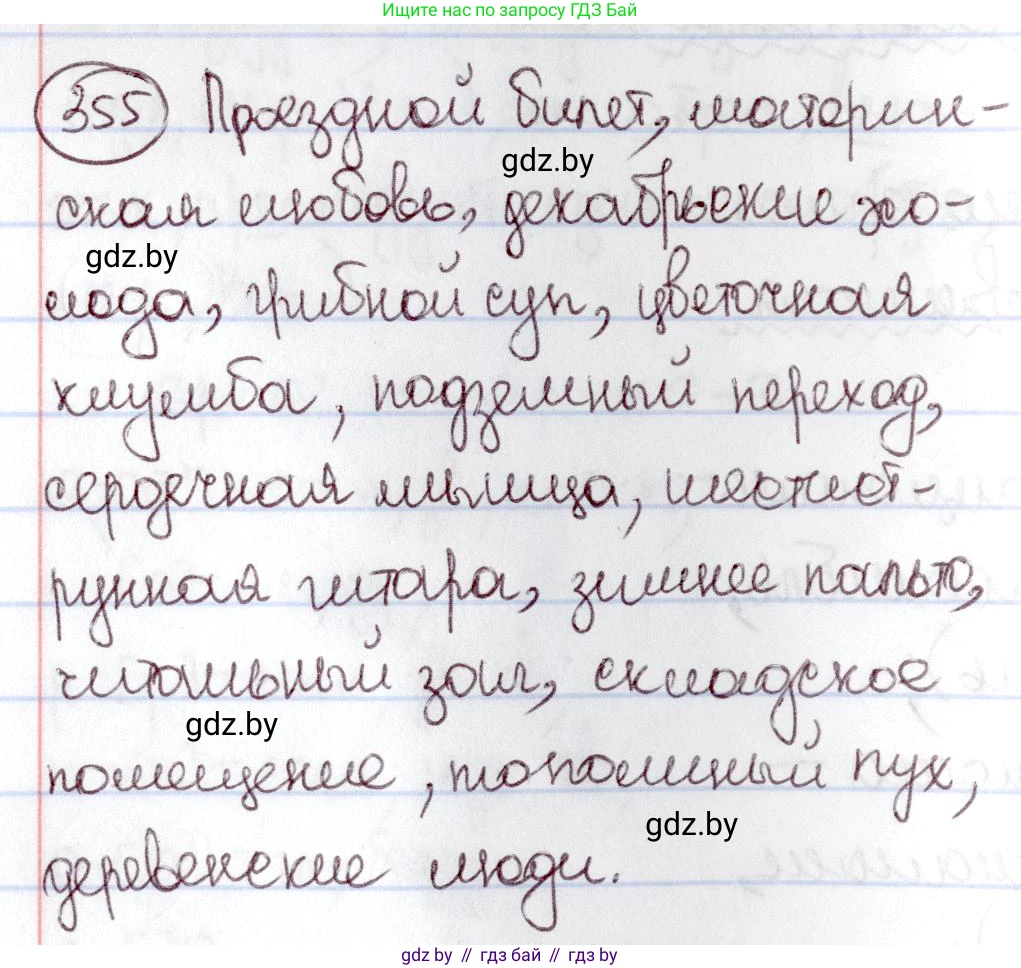 Ищите нас по запросу ГДЗ Бай
355 Проездной билет, материн-
gdz.by
ская любовь, декабрьские хо-
gdz.by
лода, грибной суп, цветочная
клумба, подземный переход,
сердечная мышца, шестист-
рунная гитара, зимнее пальто,
читальный зал, складское
gdz.by
помещение, тополиный пух,
gdz.by
деревенские люди.
gdz.by // гдз бай // гдз by